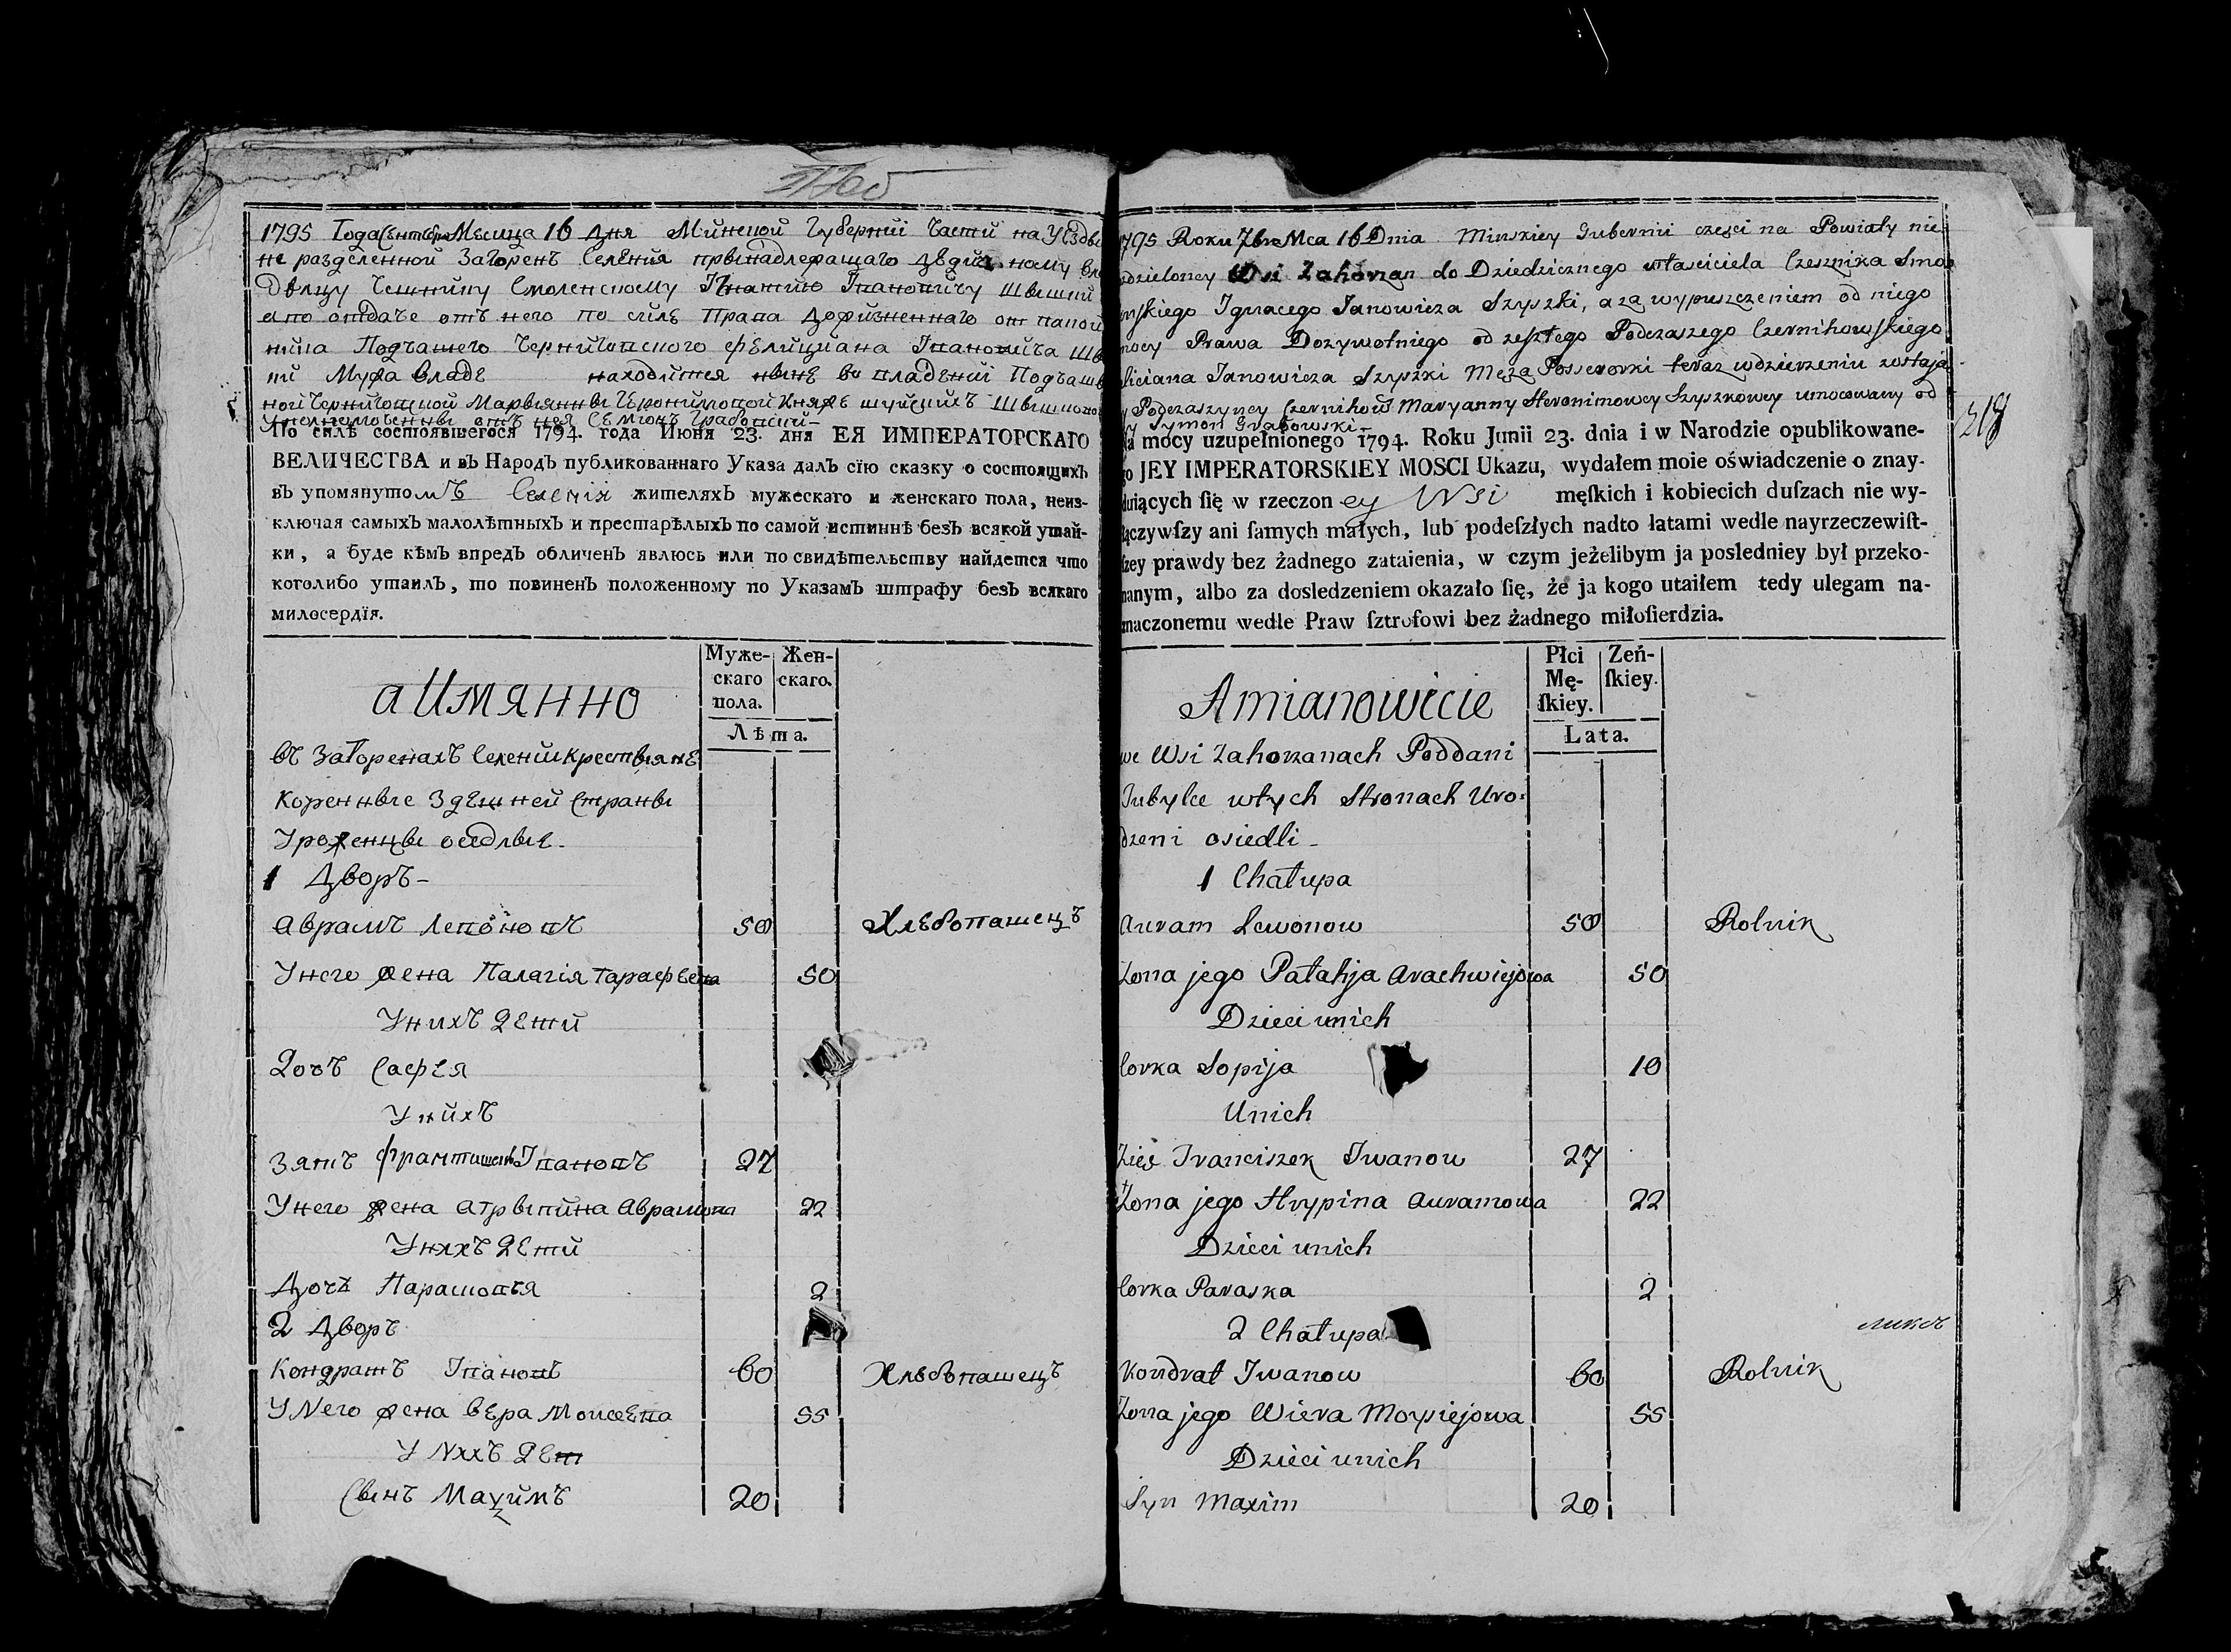 1795 Года Сентебра Месица 16 дня Минской Губерніи Части на Уездвы
не разделенной Загоренъ Селенія првинадлежащаго дедич.ному вла
двлцу Чешнику Смоленскому Игнатию Ивановичу Швишки
а по отдаче отъ него по силе Права дожизненнаго от
Подчашего Черниговского Фелициана Ивановича Шв
ки Мужа владе находится нвине во владений Подчаш
ной Черниговской Марвианнви Иеронимовой Княжъ шуйскихъ Швишково
отъ нея Семіонъ Грабовский
По силѣ состоявшегося 1794. года Июня 23. дня ЕЯ ИМПЕРАТОРСКАГО
ВЕЛИЧЕСТВА и въ Народъ публикованнаго Указа далъ сїю сказку о состоящихъ
въ упомянутомъ Селеніи жителяхъ мужескаго и женскаго пола, неиз-
ключая самыхъ малолѣтныхъ и престарѣлыхъ по самой истиннѣ безъ всякой утай-
ки, а буде кѣмъ впредъ обличенъ явлюсь или по свидѣтельству найдется что
коголибо утаилъ, то повиненъ положенному по Указамъ штрафу безъ всякаго
милосердїя.
аИмянно
Муже-
скаго
пола.
Жен-
скаго.
Лѣта.
въ Загоренахъ Селении Крествяне
Кореннвие Здешней Странви
Уроженцви оседлвие -
1 Дворъ -
Аврамъ Левоновъ 50 Хлебопашецъ
Унего жена Палагія Тарасфевна 50
Унихъ дети
Дочъ Сафея
Унихъ
Зятъ Франтишекъ Ивановъ 27
Унего жена Агрвипина Аврамова 22
Унихъ дети
Дочъ Парасковъя 2
2 Дворъ
Кондратъ Ивановъ 60 Хлебопашецъ
УNего жена Вера Моисеева 55
У Nихъ дет
Свинъ Махимъ 20
1795 Roku 7bra Mca 16 Dnia Minskiey Gubernii częsci na Powiaty nie
dzieloney Wsi Zahorzan do Dziedzicznego własciciela Czesznika Smo
nskiego Ignacego Janowicza Szyszki, a za wypuszczeniem od niego
mocy Prawa Dozywotniego od zeszłego Podczaszego Czernihowskiego
liciana Janowicza Szyszki Męża Possesorki teraz wdzierzeniu zostaja
y Podczaszyney Czernihow Maryanny Heronimowey Szyszkowey umocowany od
y Symon Grabowski -
a mocy uzupełnionego 1794. Roku Junii 23. dnia i w Narodzie opublikowane-
go JEY IMPERATORSKIEY MOSCI Ukazu, wydałem moie oświadczenie o znay-
duiących ſię w rzeczoney Wsi męſkich i kobiecich duſzach nie wy-
łączywſzy ani ſamych małych, lub podeſzłych nadto łatami wedle nayrzeczewiſt-
ſzey prawdy bez żadnego zataienia, w czym jeżelibym ja posledniey był przeko-
nanym, albo za dosledzeniem okazało ſię, że ja kogo utaiłem tedy ulegam na-
znaczonemu wedle Praw ſztrofowi bez żadnego miłoſierdzia.
218
Amianowicie
Płci
Mę-
ſkiey.
Zeń-
ſkiey.
Lata.
we Wsi Zahorzanach Poddani
Tubylce wtych Stronach Uro=
dzeni osiedli -
1 Chałupa
Auram Lewonow 50 Rolnik
Zona jego Pałahja Arachwiejowa 50
Dzieci unich
Corka Sopija 10
Unich
Zięć Franciszek Iwanow 27
Żona jego Hrypina Auramowa 22
Dzieci unich
Corka Paraska 2
2 Chałupa
Kondrat Iwanow 60 Rolnik
Zona jego Wiera Moysiejowa 55
Dzieci unich
Syn Maxim 20